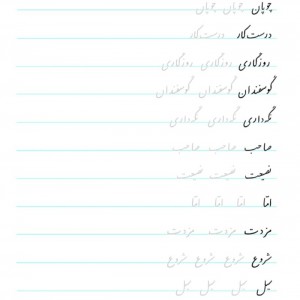 چوپان چوپان چوپان
درست‌کار درست‌کار
روزگاری روزگاری روزگاری
گوسفندان گوسفندان گوسفندان
نگهداری نگهداری نگهداری
صاحب صاحب صاحب
نصیحت نصیحت نصیحت
امّا امّا امّا امّا
مزدت مزدت مزدت
شروع شروع شروع شروع
سیل سیل سیل سیل